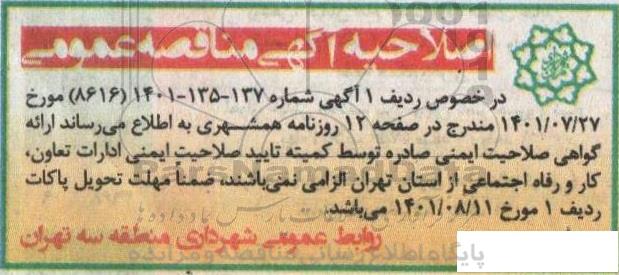 اصلاحیه آگهی مناقصه عمومی
در خصوص ردیف ۱ آگهی شماره ۱۳۷-۱۳۵-۱۴۰۱ (۸۶۱۶) مورخ
۱۴۰۱/۰۷/۲۷ مندرج در صفحه ۱۲ روزنامه همشهری به اطلاع می‌رساند ارائه
گواهی صلاحیت ایمنی صادره توسط کمیته تایید صلاحیت ایمنی ادارات تعاون،
کار و رفاه اجتماعی از استان تهران الزامی نمی‌باشند، ضمناً مهلت تحویل پاکات
ردیف ۱ مورخ ۱۴۰۱/۰۸/۱۱ می‌باشد.
روابط عمومی شهرداری منطقه سه تهران
پایگاه اطلاع رسانی مناقصه و مزایده